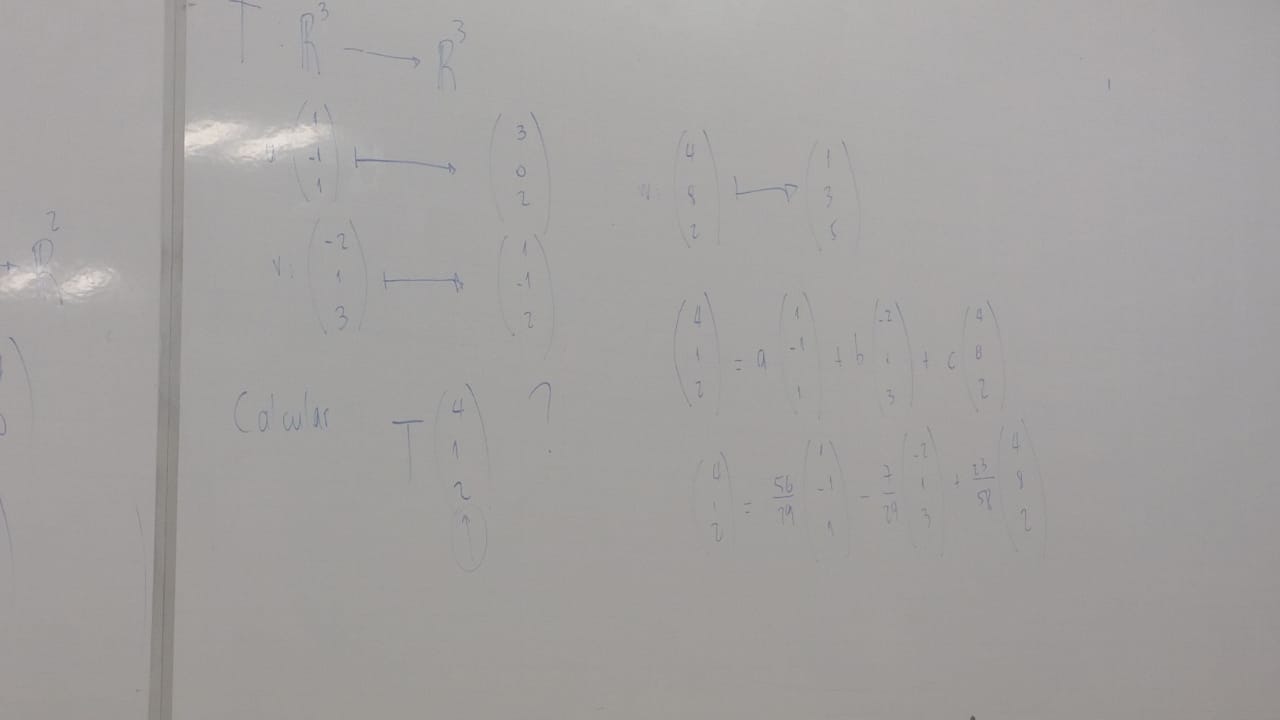 T : R³ → R³
u: (1, -1, 1) ↦ (3, 0, 2)
v: (-2, 1, 3) ↦ (1, -1, 2)
Calcular T (4, 1, 2) ?
↑
(4, 8, 2) ↦ (1, 3, 5)
(4, 1, 2) = a (1, -1, 1) + b (-2, 1, 3) + c (4, 8, 2)
(4, 1, 2) = 56/29 (1, -1, 1) - 7/29 (-2, 1, 3) + 23/58 (4, 8, 2)
R²